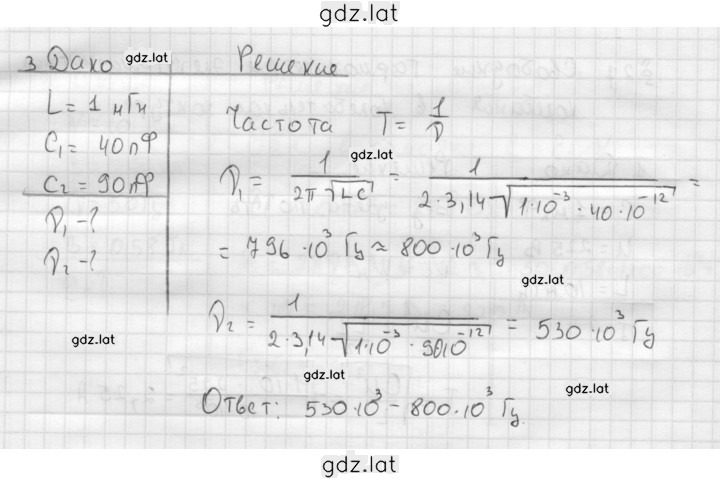 gdz.lat
3 Дано
gdz.lat
Решение
L = 1 мГн
C₁ = 40 пФ
C₂ = 90 пФ
ν₁ - ?
ν₂ - ?
Частота T = 1/ν
gdz.lat
ν₁ = 1/(2π√LC) = 1/(2·3,14√(1·10⁻³·40·10⁻¹²)) =
= 796·10³ Гц ≈ 800·10³ Гц
gdz.lat
ν₂ = 1/(2·3,14√(1·10⁻³·9010⁻¹²)) = 530·10³ Гц
gdz.lat
gdz.lat
gdz.lat
Ответ: 530·10³ - 800·10³ Гц.
gdz.lat